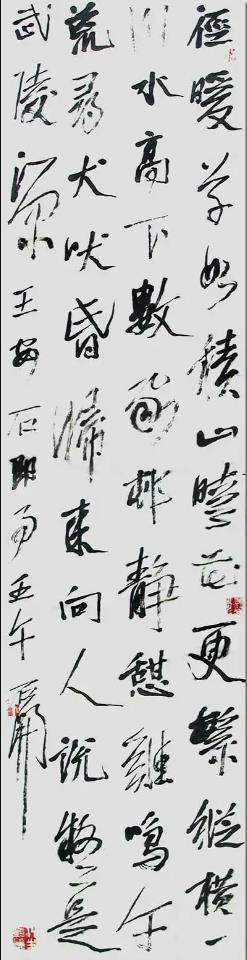 徑暖草如積山晴花更繁縱橫一
川水高下數家邨靜憩雞鳴午
荒尋犬吠昏歸來向人說疑是
武陵源 王安石即事 壬午